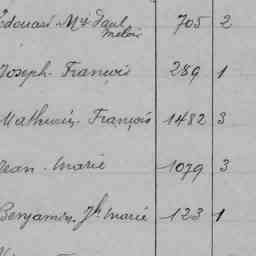 Edouard Mie Paul 705 2
Melois
Joseph François 289 1
Mathurin François 1482 3
Jean Marie 1079 3
Benjamin Jh Marie 123 1